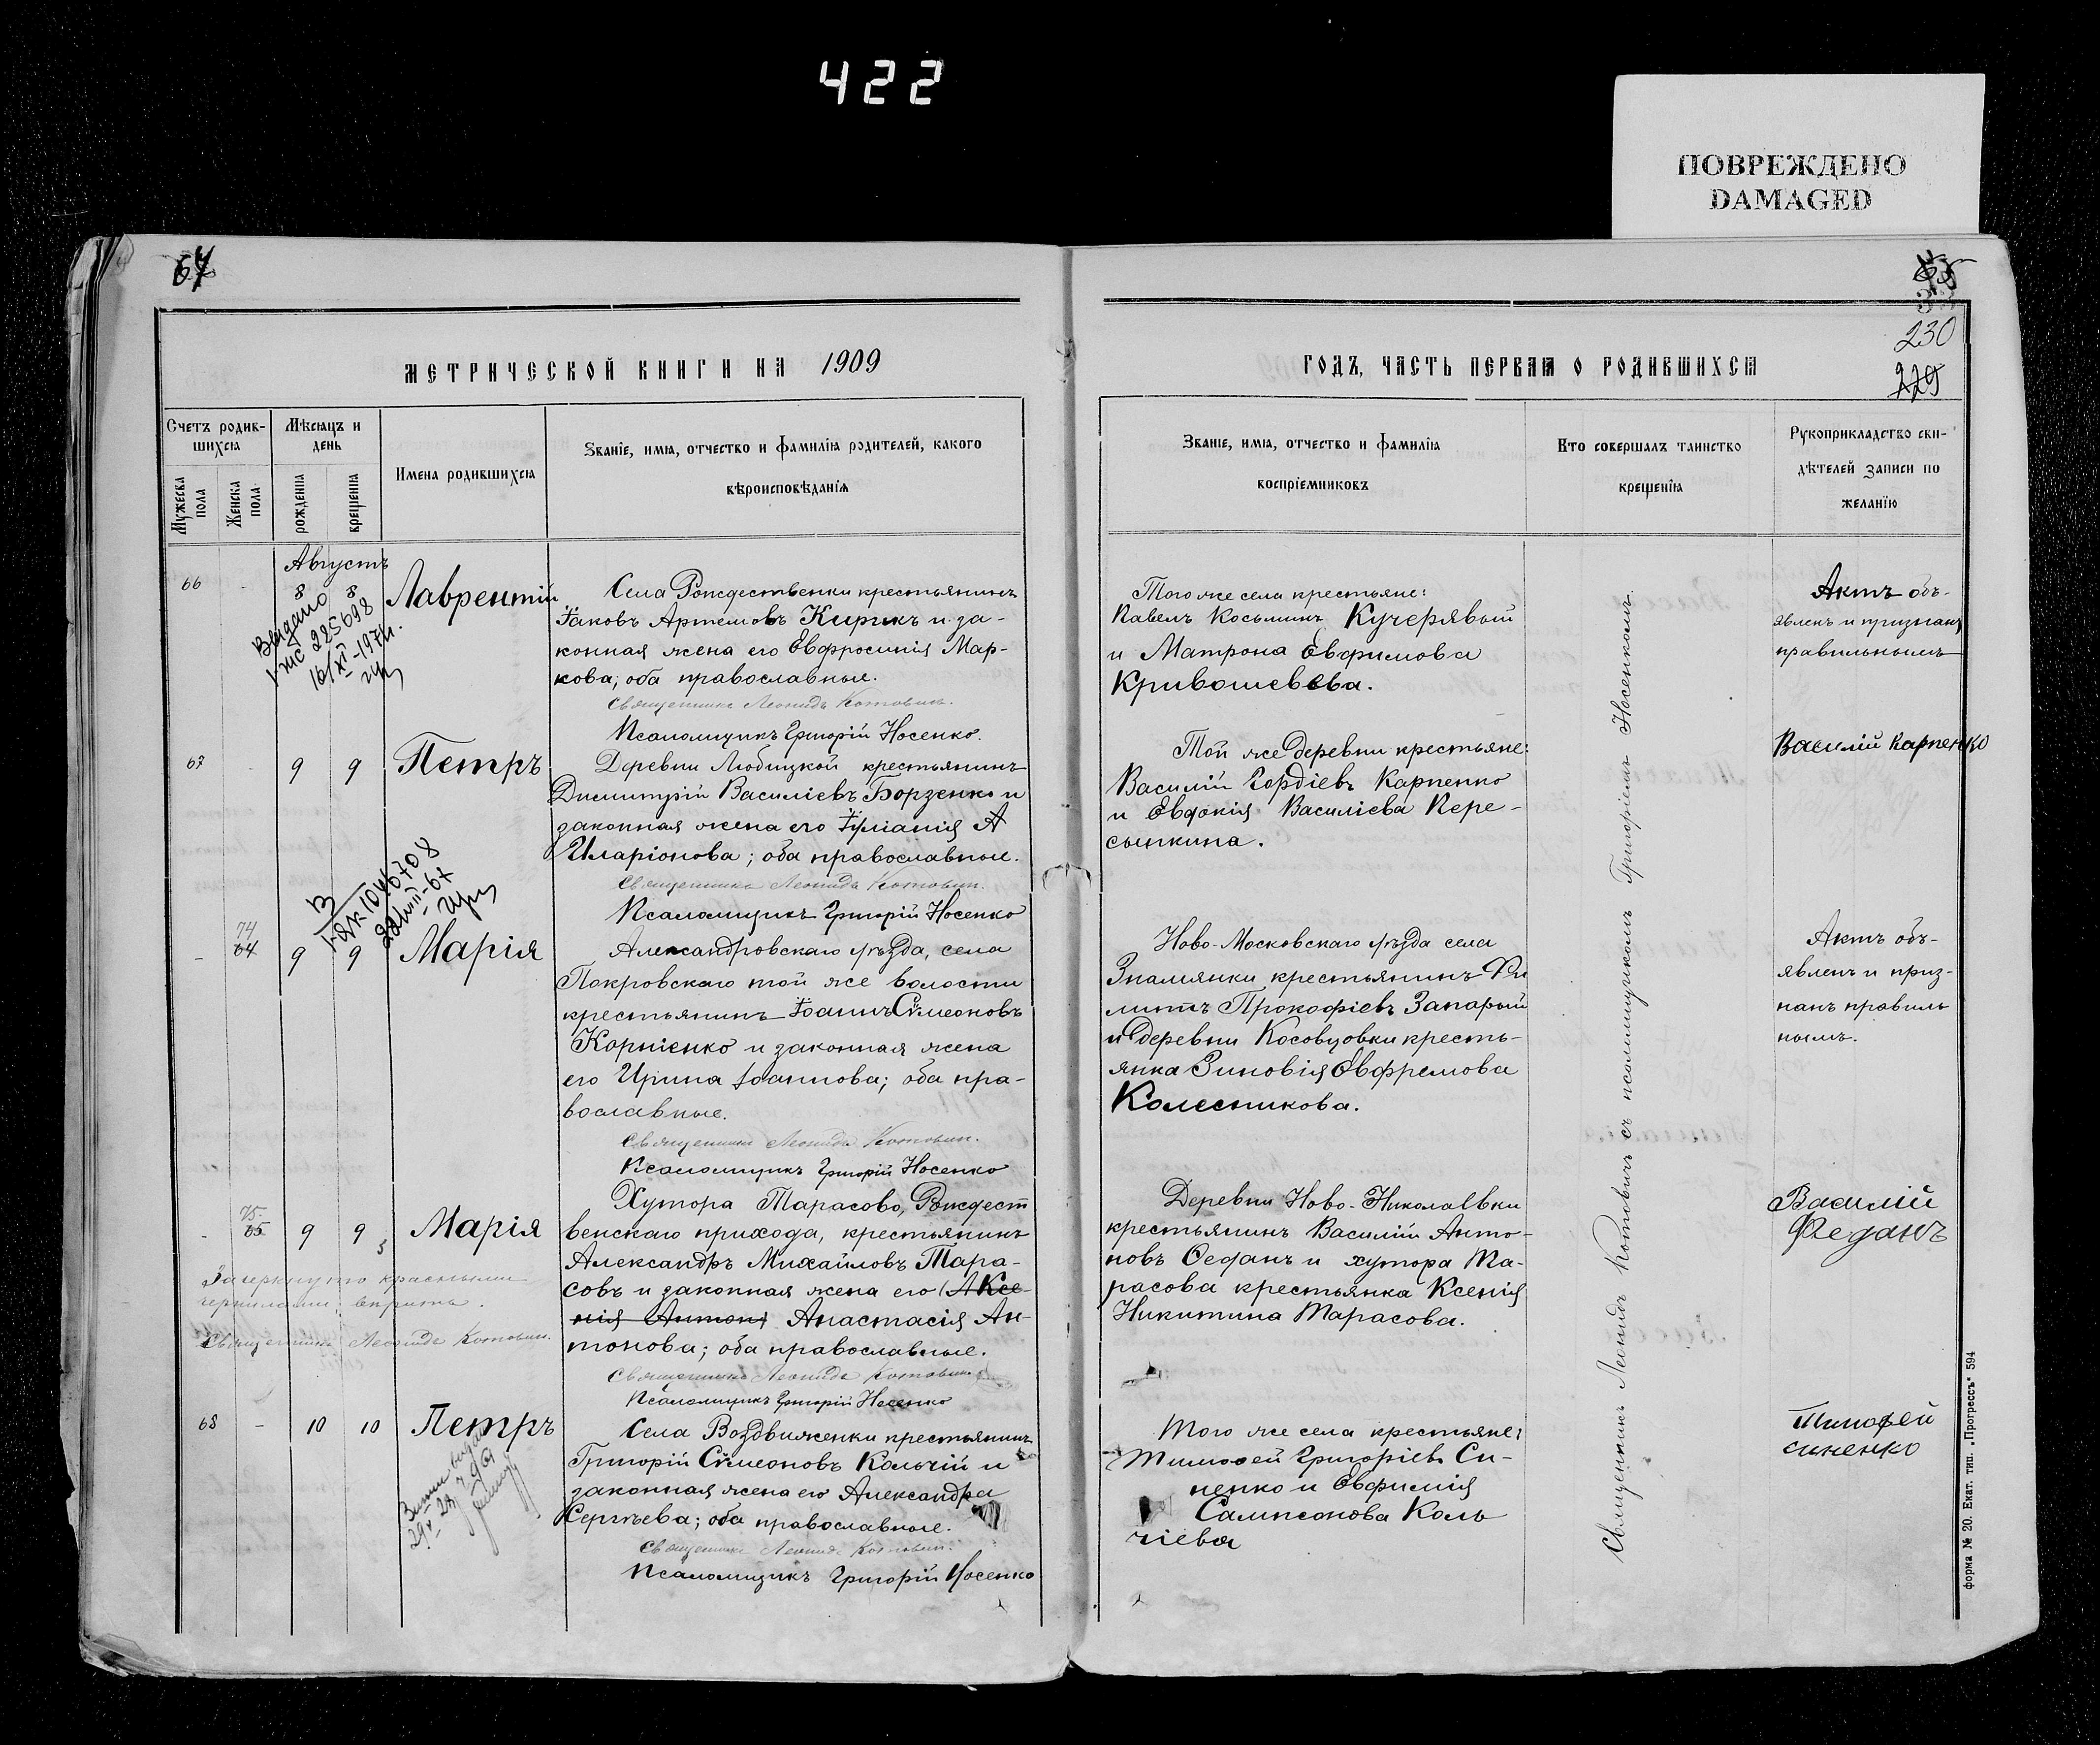 422
ПОВРЕЖДЕНО
DAMAGED
67
230
229
МЕТРИЧЕСКОЙ КНИГИ НА 1909
ГОДЪ, ЧАСТЬ ПЕРВАЯ О РОДИВШИХСЯ
Счетъ родив-
шихся
Мужеска пола
Женска пола
Мѣсяцъ и
день
рожденія
крещенія
Имена родившихся
Званіе, имя, отчество и фамилія родителей, какого
вѣроисповѣданія
Званіе, имя, отчество и фамилія
воспріемниковъ
Кто совершалъ таинство
крещенія
Рукоприкладство сви-
дѣтелей записи по
желанію
Августъ
66 - 8 8 Лаврентій
Выдано
225698
16/XI-1974.
Села Рождественки крестьянинъ
Іаковъ Артемовъ Кирикъ и за-
конная жена его Евфросинія Мар-
кова; оба православные.
Священникъ Леонидъ Котовичъ.
Псаломщикъ Григорій Носенко.
Того же села крестьяне:
Павелъ Косьминъ Кучерявый
и Матрона Евфимова
Кривошеева.
Актъ объ-
явленъ и признанъ
правильнымъ
67 - 9 9 Петръ
Деревни Любицкой крестьянинъ
Димитрій Василіевъ Борзенко и
законная жена его Іуліанія А
Иларіонова; оба православные.
Священникъ Леонидъ Котовичъ.
Псаломщикъ Григорій Носенко
Той же деревни крестьяне:
Василій Гордіевъ Карпенко
и Евдокія Василіева Пере-
сыпкина.
Василій Карпенко
74
- 64 9 9 Марія
Александровскаго уѣзда, села
Покровскаго той же волости
крестьянинъ Іоаннъ Сѵмеоновъ
Корніенко и законная жена
его Ирина Іоаннова; оба пра-
вославные.
Священникъ Леонидъ Котовичъ.
Псаломщикъ Григорій Носенко
Ново-Московскаго уѣзда села
Знаменки крестьянинъ Фи
липпъ Прокофіевъ Запарый
и деревни Косовцовки кресть-
янка Зиновія Евфремова
Колесникова.
Актъ объ-
явленъ и приз-
нанъ правиль
нымъ.
75
- 65 9 9 Марія
Зачеркнуто красными
чернилами вѣрить.
Священникъ Леонидъ Котовичъ.
Хутора Тарасово, Рождест
венскаго прихода, крестьянинъ
Александръ Михайловъ Тара-
совъ и законная жена его (АКсе-
нія Антон) Анастасія Ан-
тонова; оба православные.
Священникъ Леонидъ Котовичъ
Псаломщикъ Григорій Носенко
Деревни Ново-Николаевки
крестьянинъ Василій Анто-
новъ Ѳеданъ и хутора Та-
расова крестьянка Ксенія
Никитина Тарасова.
Василій
Феданъ
68 - 10 10 Петръ
Села Воздвиженки крестьянинъ
Григорій Сѵмеоновъ Кольчій и
законная жена его Александра
Сергѣева; оба православные.
Священникъ Леонидъ Котовичъ.
Псаломщикъ Григорій Носенко
Того же села крестьяне:
Тимоѳей Григоріевъ Си-
ненко и Евфимія
Сампсонова Коль
чіева
Тимофей
Синенко
Священникъ Леонидъ Котовичъ съ псаломщикомъ Григоріемъ Носенкомъ.
форма № 20. Екат. тип. „Прогрессъ" 594